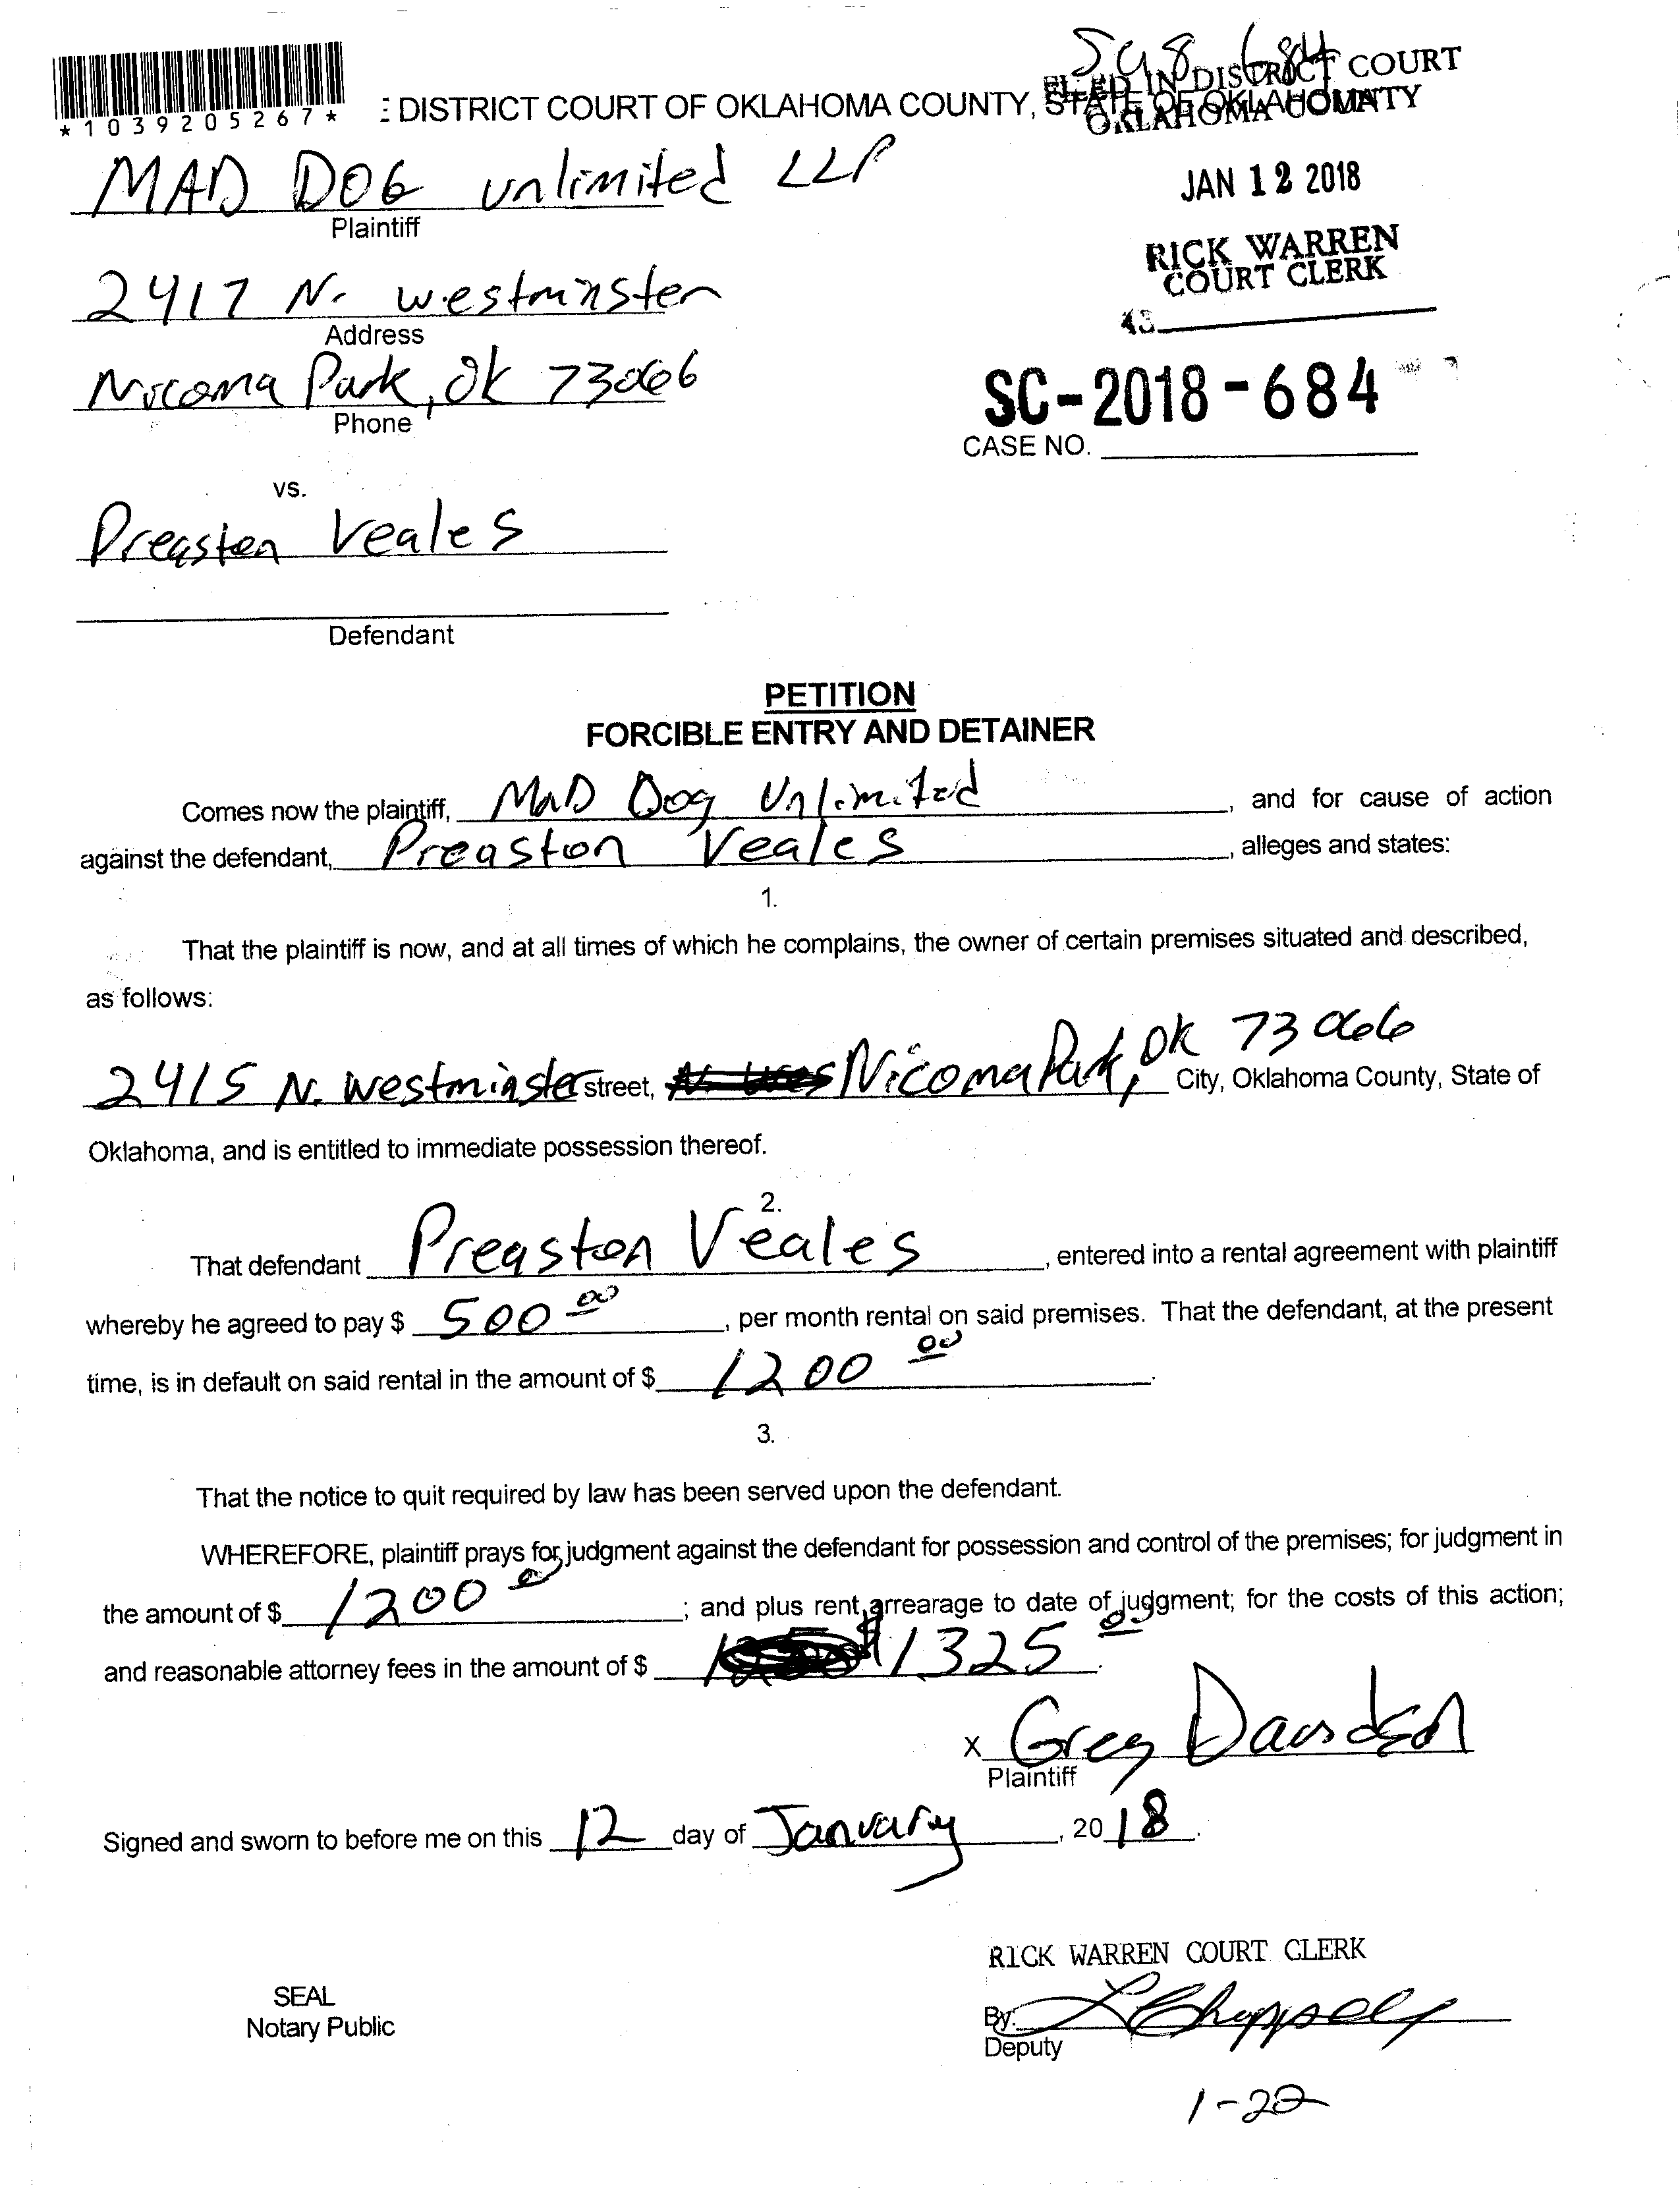 SC 18 684
*1039205267*
E DISTRICT COURT OF OKLAHOMA COUNTY, STATE OF OKLAHOMA
FILED IN DISTRICT COURT
OKLAHOMA COUNTY
MAD DOG unlimited LLP
Plaintiff
JAN 12 2018
RICK WARREN
COURT CLERK
2417 N. westminster
Address
Nicoma Park, OK 73066
Phone
SC-2018-684
CASE NO.
vs.
Preaston Veales
Defendant
PETITION
FORCIBLE ENTRY AND DETAINER
Comes now the plaintiff, MaD Dog Unlimited, and for cause of action
against the defendant, Preaston Veales, alleges and states:
1.
That the plaintiff is now, and at all times of which he complains, the owner of certain premises situated and described,
as follows:
2415 N. Westminster street, Nicoma Park, OK 73066 City, Oklahoma County, State of
Oklahoma, and is entitled to immediate possession thereof.
2.
That defendant Preaston Veales, entered into a rental agreement with plaintiff
whereby he agreed to pay $ 500 00, per month rental on said premises. That the defendant, at the present
time, is in default on said rental in the amount of $ 1200 00.
3.
That the notice to quit required by law has been served upon the defendant.
WHEREFORE, plaintiff prays for judgment against the defendant for possession and control of the premises; for judgment in
the amount of $ 1200 00; and plus rent arrearage to date of judgment; for the costs of this action;
and reasonable attorney fees in the amount of $ $1325 0.
x Greg Davidson
Plaintiff
Signed and sworn to before me on this 12 day of January, 2018.
RICK WARREN COURT CLERK
SEAL
Notary Public
By: L Chappell
Deputy
1-22